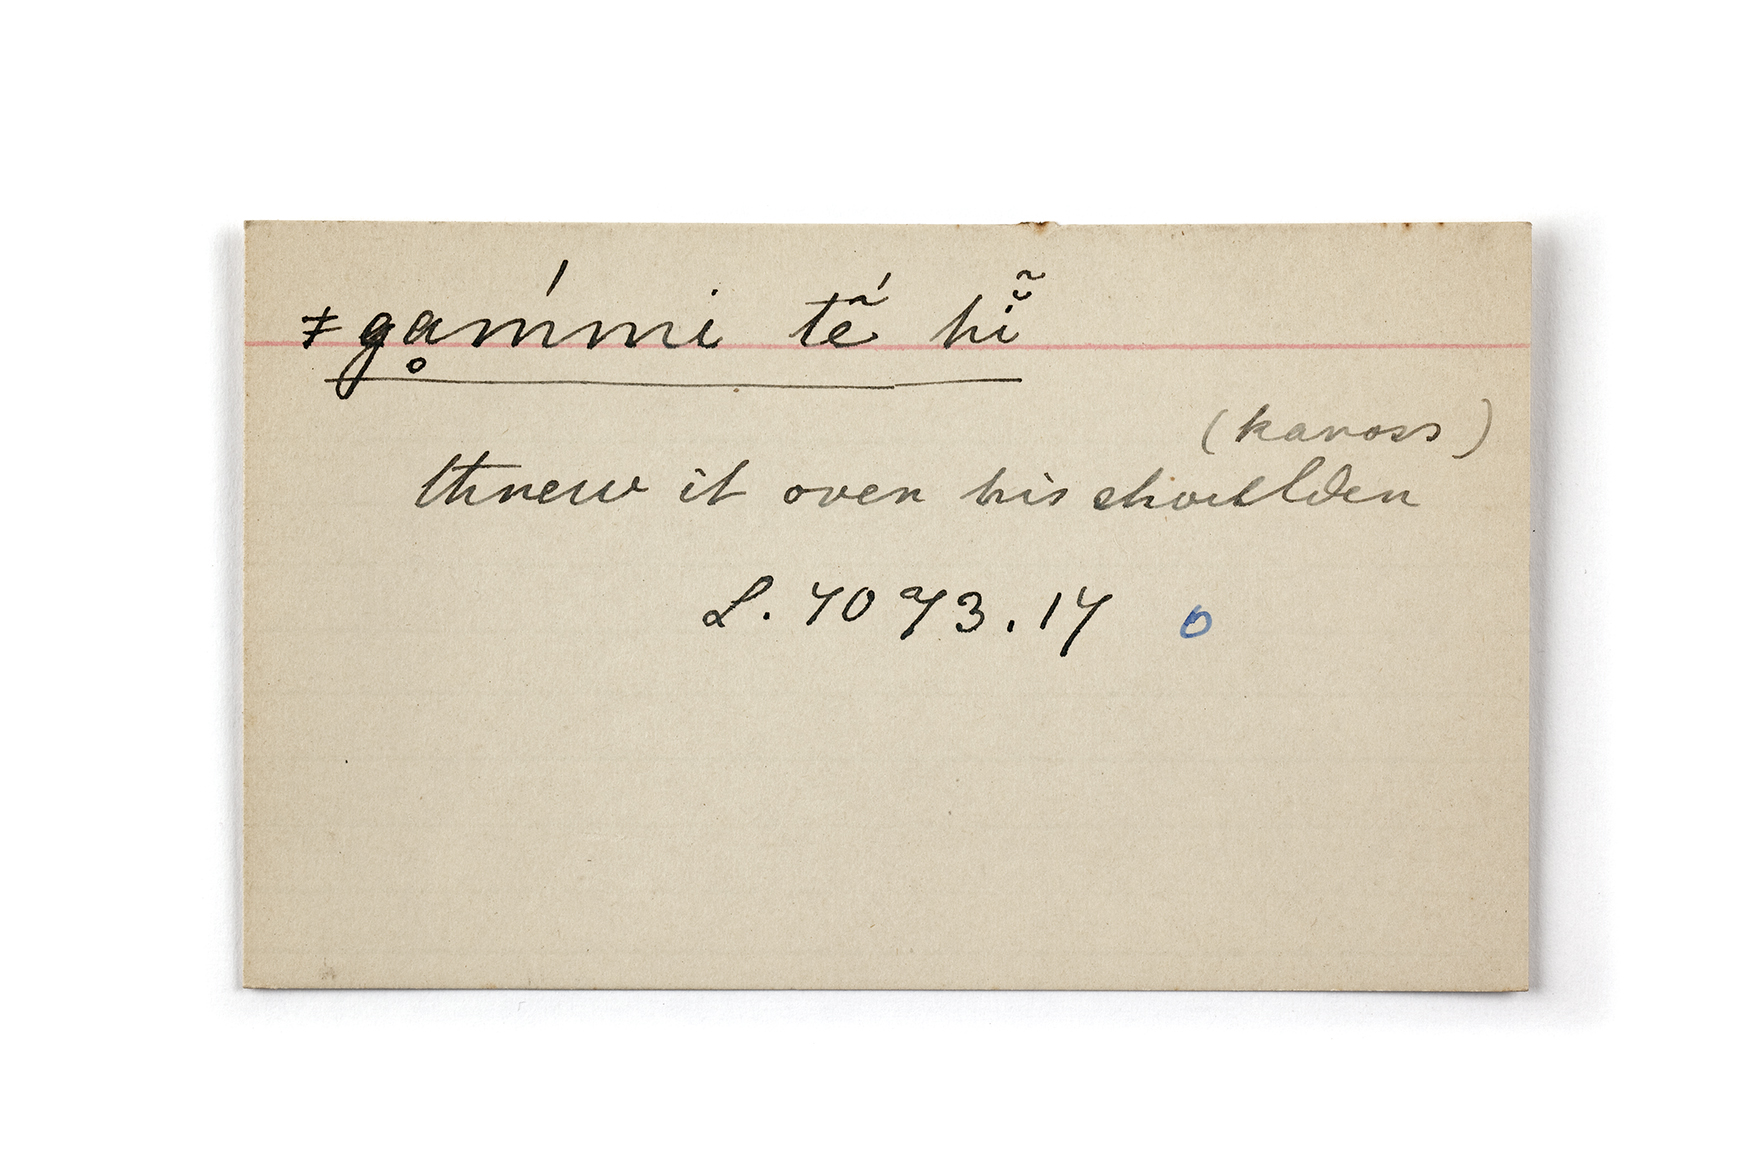 ǂgạ̊ḿmi tẽ́ hĩ̆
(kaross)
threw it over his shoulder
L. 7073.17 o